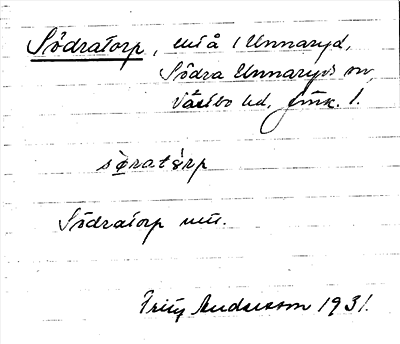 Södratorp, i Unnaryd,
Södra Unnaryds sn,
Västbo hd, Jönk. l.
Södratorp
Fritz Andersson 1931.